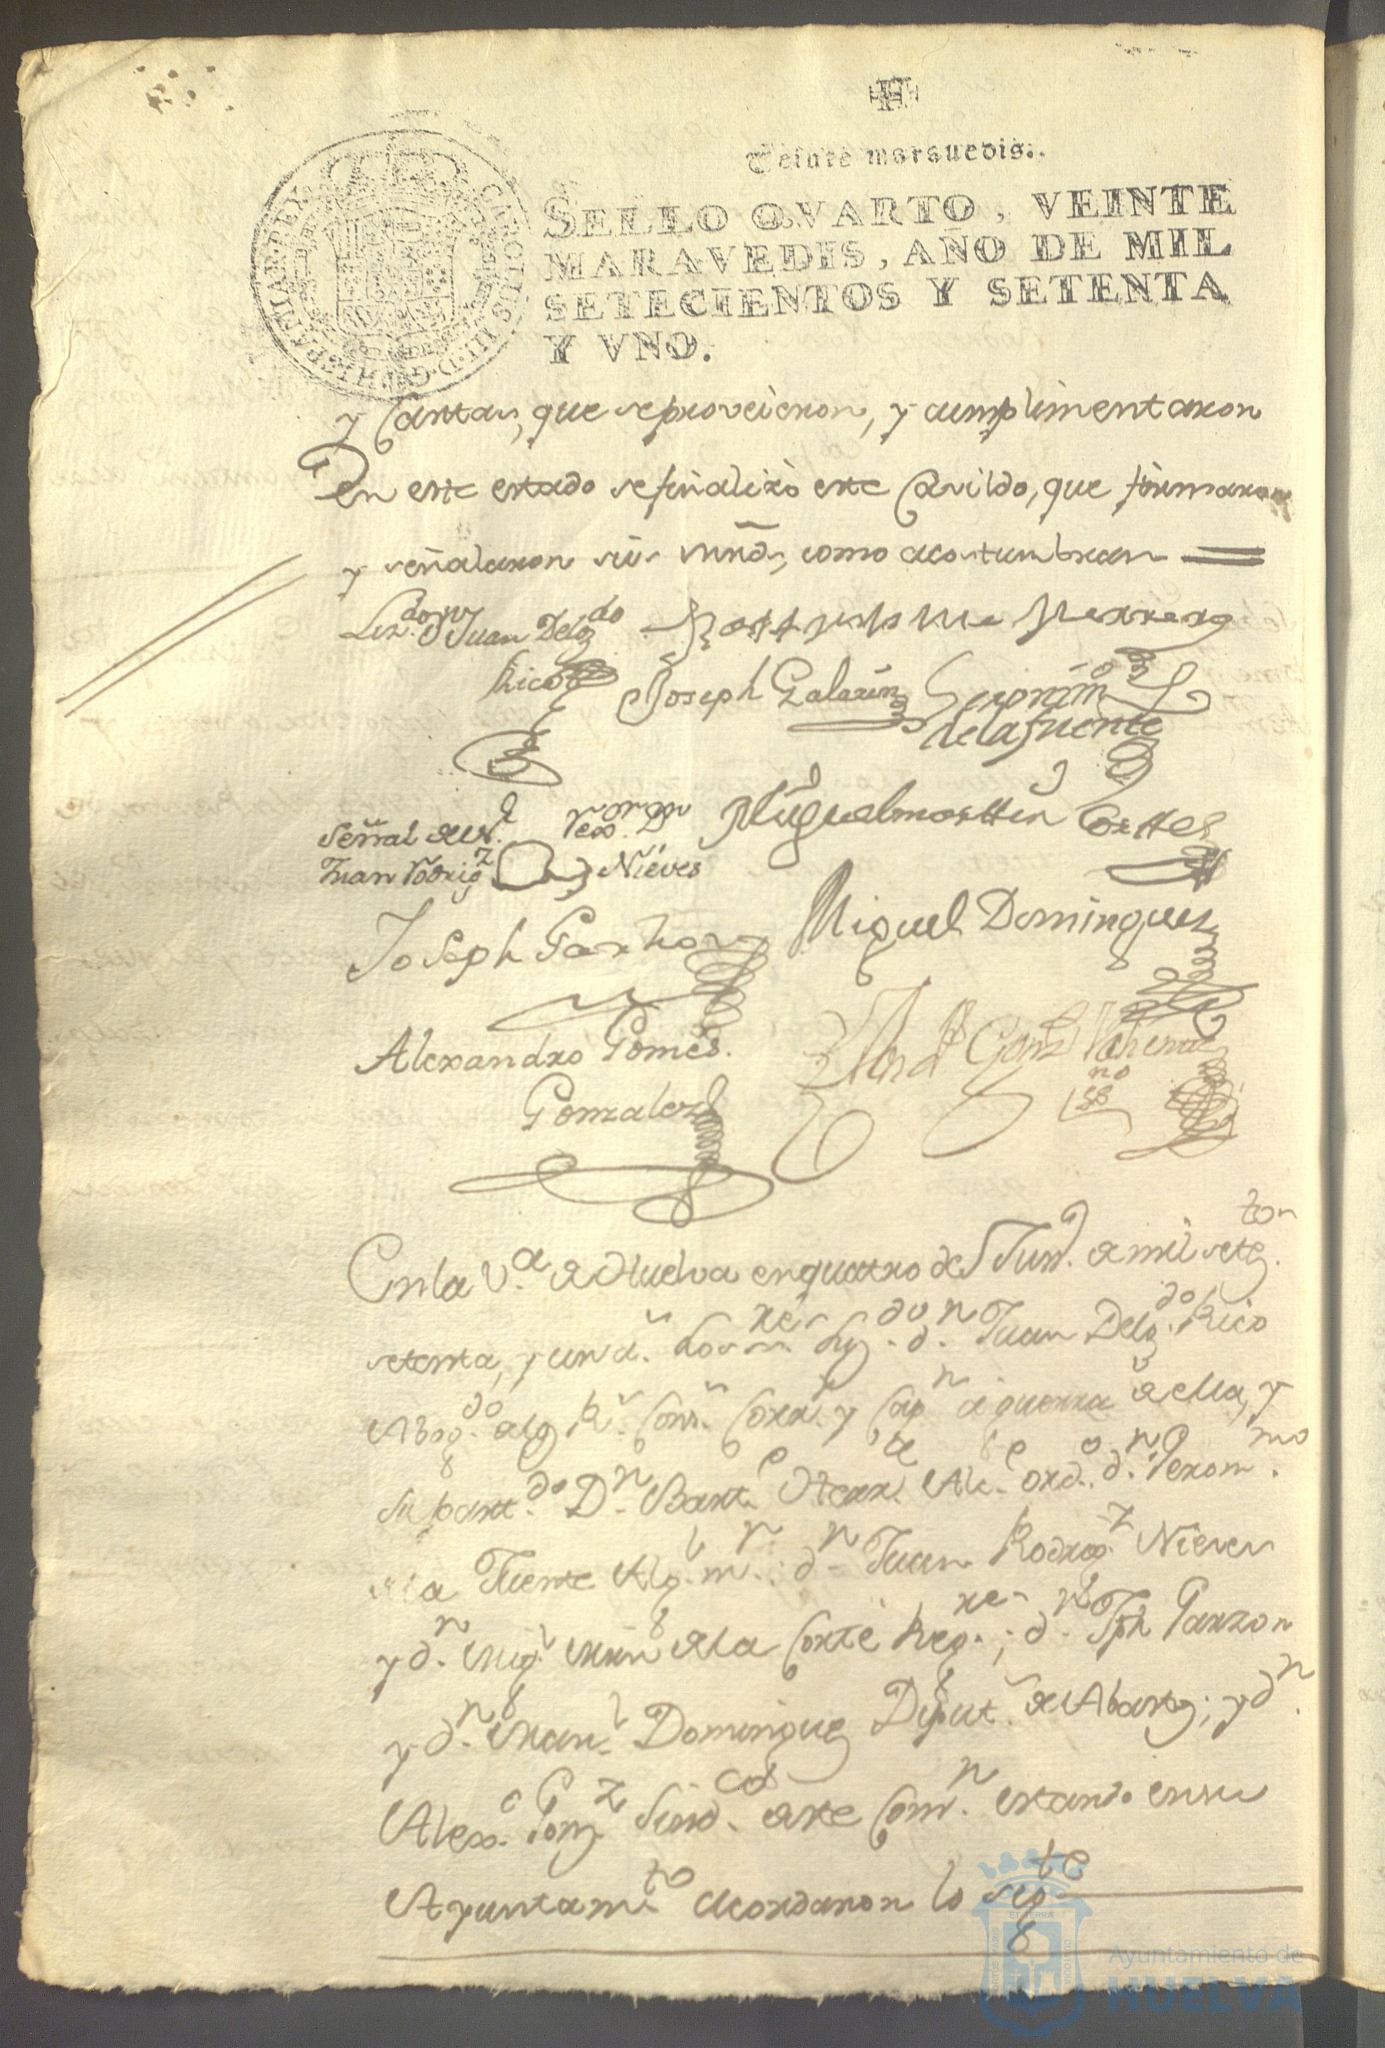 Veinte marauedis..
SELLO QVARTO, VEINTE
MARAVEDIS, AÑO DE MIL
SETECIENTOS Y SETENTA
Y VNO.
CAROLUS III D G HISPANIAR REX
y Carttas, que se proveieron, y cumplimentaron
En este estado se finalizó este Cavildo, que firmaron
y señalaron sus mrds, como acostumbran
Lizdo. Dn Juan Delgdo
Rico
Joseph Galarin Geronimo
delafuente
Señal del Rexor. Dn Miguel marttin Corttes
Juan Rodrigz Nieves
Joseph Garzon Miguel Dominguez
Alexandro Gomes Gonz
Gonzalez
En la Va. de Huelva en quatro de Jun. de mil setez.tos
setenta, y un a. los Sres. Liz.do d.n Juan Delg.do Rico
Abog.do de los R. Cons. Corr. y Cap.n a guerra de ella, y
su part.do D.n Bart.e Herr. Alc.e ord.o d.n Geron.mo
de la Fuente Alg.l m.r d.n Juan Rodrig.z Nieves
y d.n Mig.l Mrn de la Corte Reg.res; d.n Jph Garzon
y d.n Man.l Dominguez Diput.s de Abastos; y d.n
Alex.o Gonz.z Sind.co de este Com.n estando en su
Ayuntam.to acordaron lo sig.te
Ayuntamiento de
HUELVA